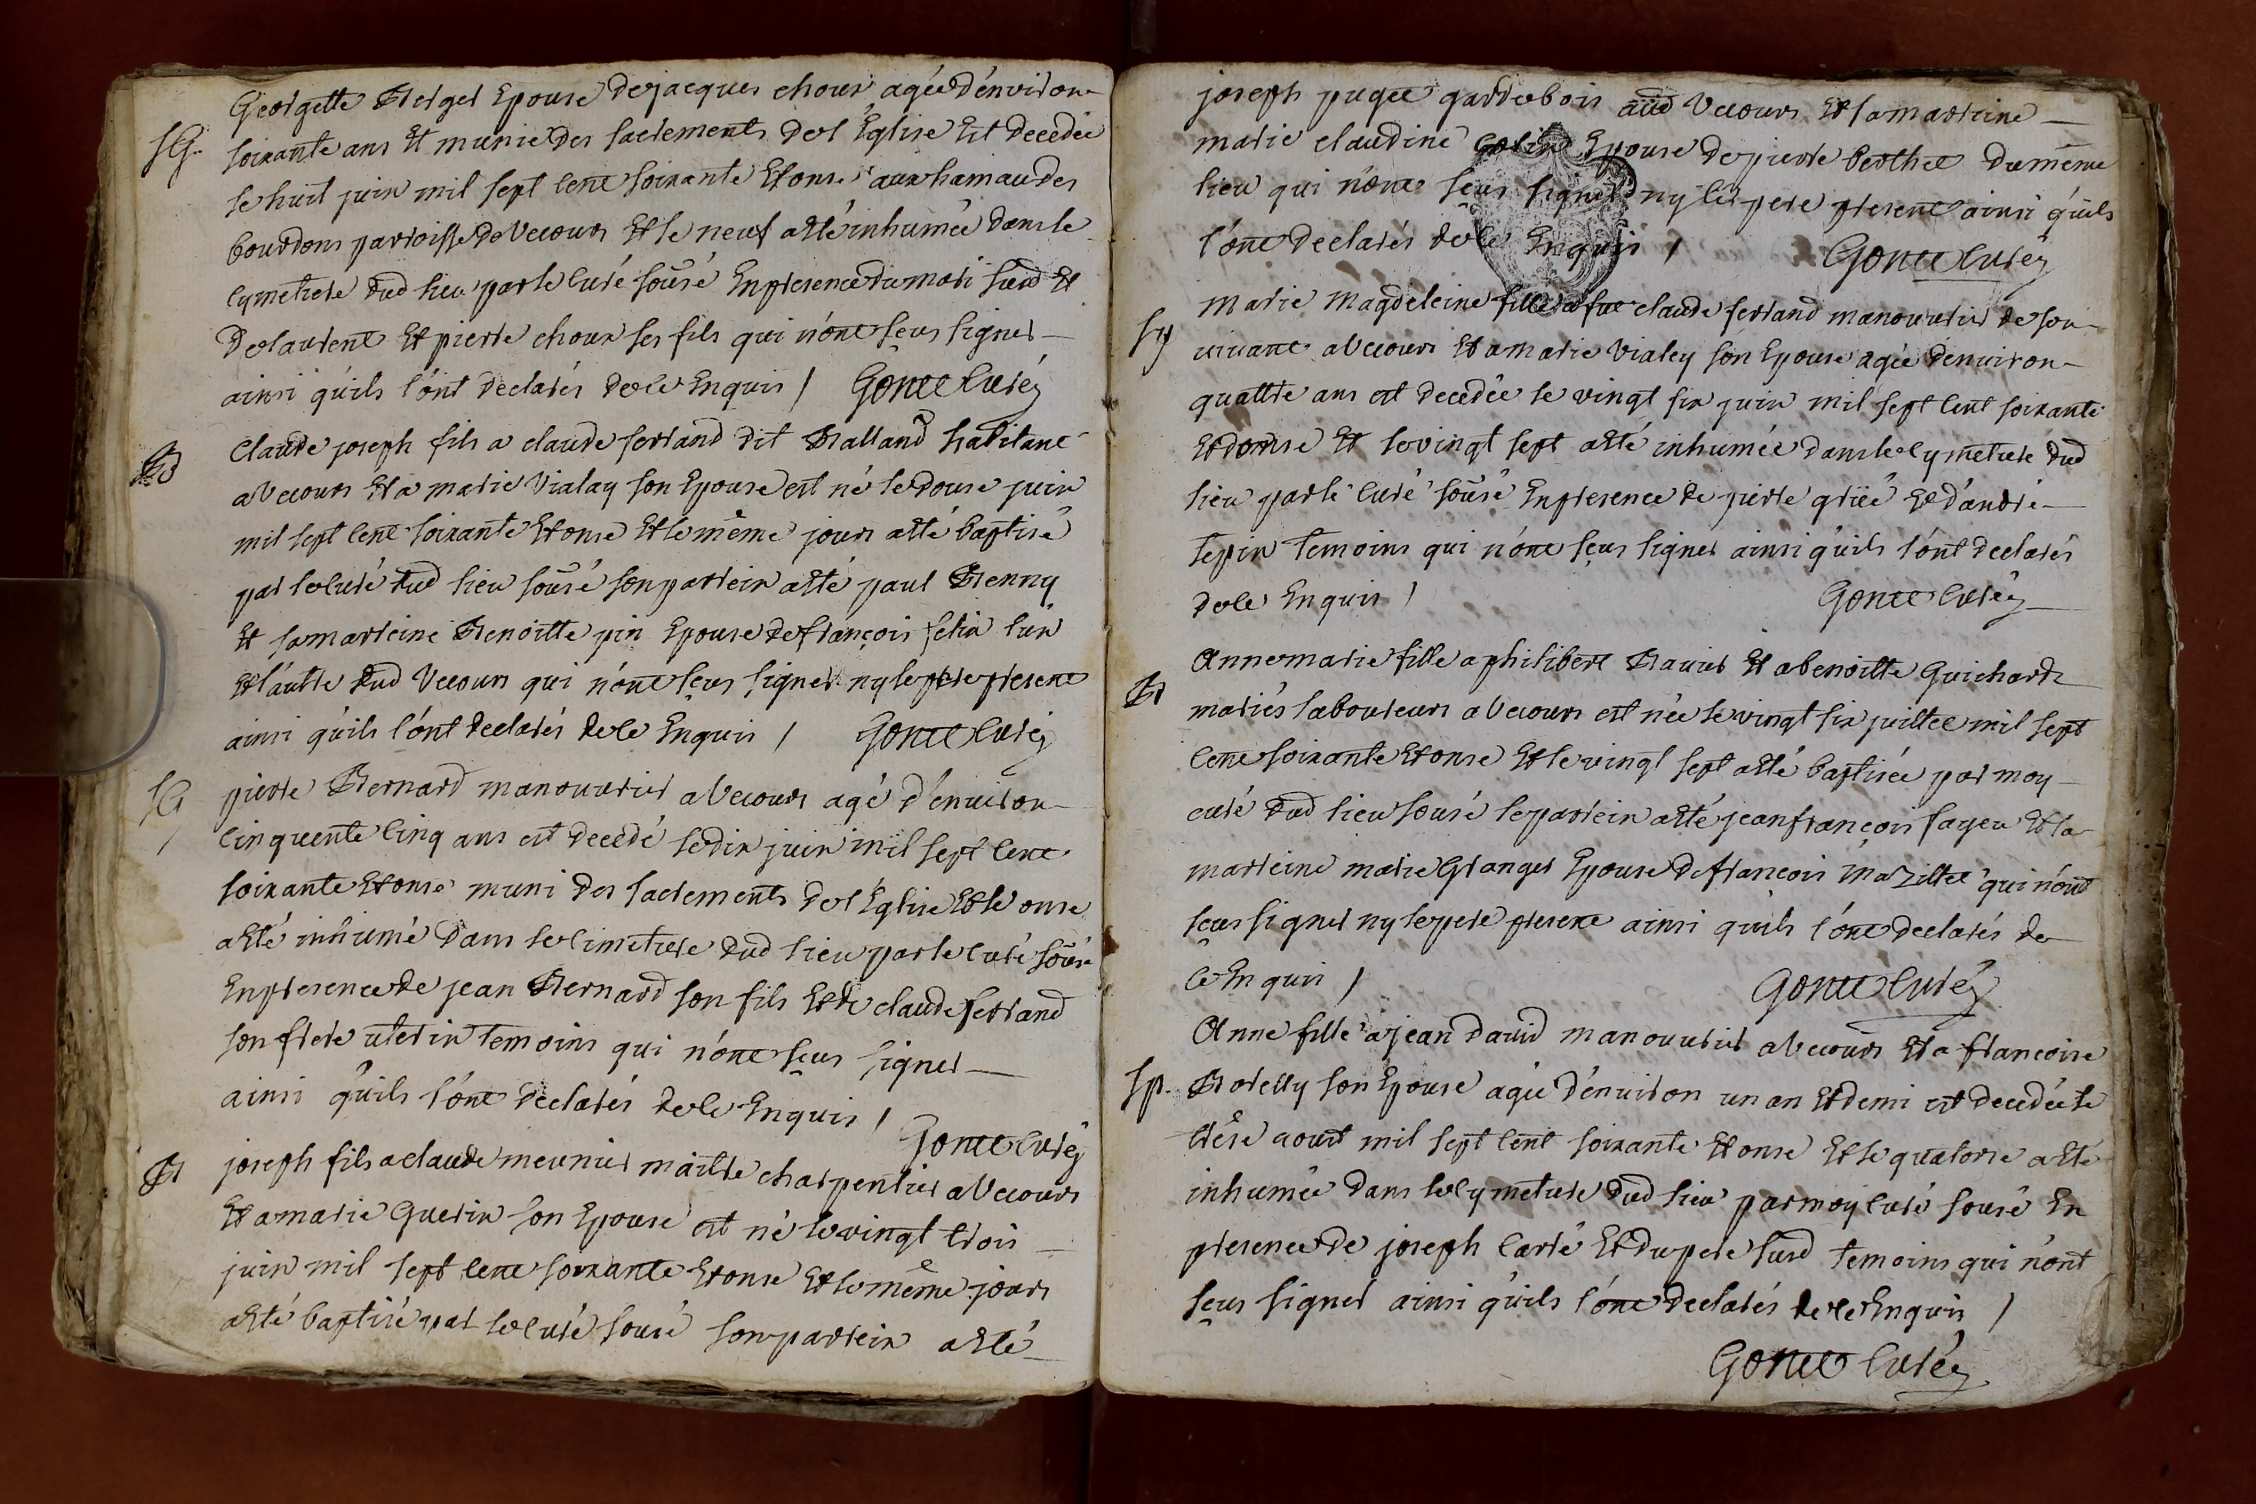 Georgette Berger Epouse de jacques choux agée d'environ
SG. soixante ans Et munie des sacrements de l'Eglise Est decedée
le huit juin mil sept cent soixante Et onse aux hamau des
bourdons parroisse de Vecours Et le neuf a Eté inhumée dans le
cymetiere dud lieu par le curé sousé En presence du mari susd Et
de laurent Et pierre choux ses fils qui n'ont sçus signer
ainsi qu'ils l'ônt declarés de ce Enquis / Gonet curé
Claude joseph fils a claude ferrand dit Balland habitant
a Vecours Et a marie Vialay son Epouse est né le douse juin
mil sept cent soixante Et onse Et le même jours a Eté baptisé
par le curé dud lieu sousé son parrein a Eté paul Benny
Et sa marreine Benoitte pin Epouse de françois felix l'un
Et l'autre dud Vecours qui n'ont sçus signer ny le pere present
ainsi qu'ils l'ônt declarés de ce Enquis / Gonet curé
SG pierre Bernard manouvrier a Vecours agé d'environ
cinquente cinq ans est decedé le dix juin mil sept cent
soixante Et onse muni des sacrements de l'Eglise Et le onse
a Eté inhumé dans le cimetiere dud lieu par le curé sousé
En presence de jean Bernard son fils Et de claude ferrand
son frere uterin temoins qui n'ônt sçus signer
ainsi qu'ils l'ônt declarés de ce Enquis /
Gonet curé
Bt joseph fils a claude meunier maitre charpentier a Vecours
Et a marie Guerin son Epouse est né le vingt trois
juin mil sept cent soixante Et onse Et le même jours
a Eté baptisé par le curé sousé son parrein a Eté
joseph puget garde bois aud Vecours Et sa marreine
marie claudine Epouse de pierre berthet du même
lieu qui n'ônt sçus signer ny le pere present ainsi qu'ils
l'ônt declarés de ce Enquis / Gonet curé
marie magdeleine fille a fut claude ferrand manouvrier de son
vivant a Vecours Et a marie Vialey son Epouse agée denviron
quattre ans est decedée le vingt six juin mil sept cent soixante
Et onse Et le vingt sept a Eté inhumée dans le cymetiere dud
lieu par le curé sousé En presence de pierre Et d'andré
tepin temoins qui n'ônt sçus signer ainsi qu'ils l'ônt declarés
de ce Enquis / Gonet curé
Anne marie fille a philibert Bavier Et a benoitte Guichard
Bt mariés laboureurs a Vecours est née le vingt six juillet mil sept
cent soixante Et onse Et le vingt sept a Eté baptisée par moy
curé dud lieu sousé le parrein a Eté jean françois fayeu Et la
marreine marie Granger Epouse de françois maZillet qui n'ônt
sçus signer ny le pere present ainsi qu'ils l'ônt declarés de
ce Enquis /
Gonet curé
Anne fille a jean david manouvrier a Vecours Et a françoise
Sp. Borelly son Epouse agée d'environ un an Et demi est decedée le
trêse aoust mil sept cent soixante Et onse Et le quatorse a Eté
inhumée dans le cymetiere dud lieu par moy curé sousé En
presence de joseph carré Et du pere susd temoins qui n'ônt
sçus signer ainsi qu'ils l'ônt declarés de ce Enquis /
Gonet curé